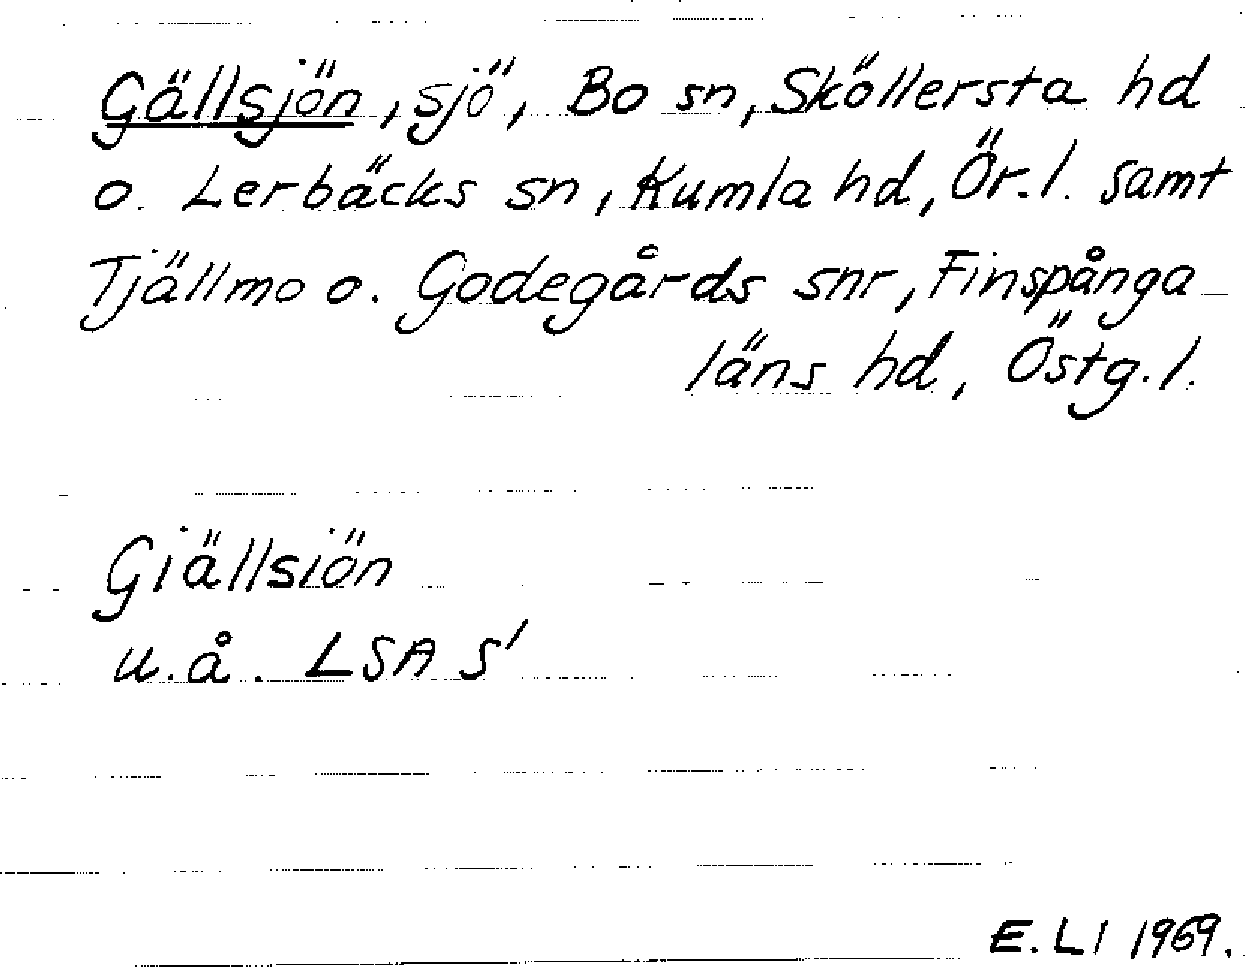 Gällsjön, sjö, Bo sn, Sköllersta hd
o. Lerbäcks sn, Kumla hd, Ör. l. samt
Tjällmo o. Godegårds snr, Finspånga-
läns hd, Östg. l.
Giällsiön
u.å. LSA S1
E. LI 1969.